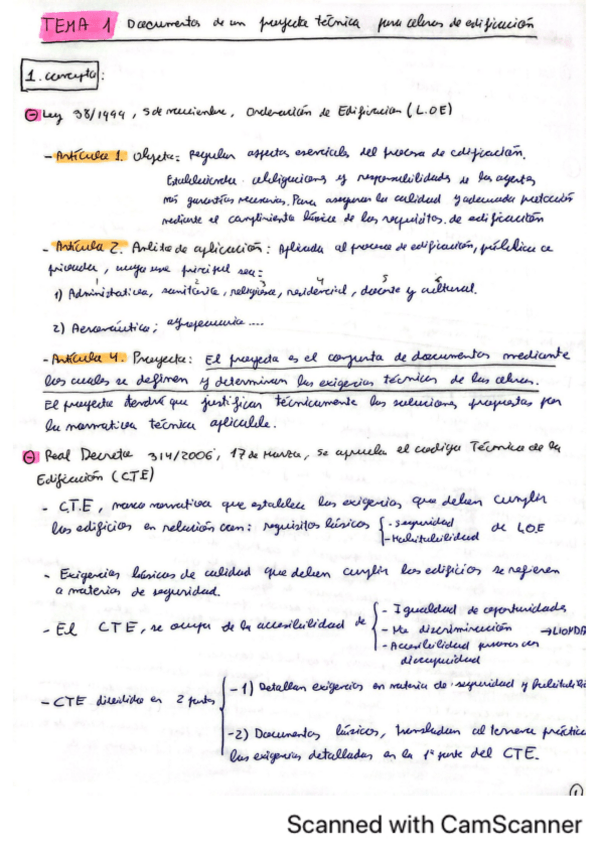 TEMA 1 Documentos de un proyecto técnico para obras de edificación
1. concepto:
Ley 38/1999, 5 de noviembre, Ordenación de Edificación (L.O.E)
- Artículo 1. Objeto: Regular aspectos esenciales del proceso de edificación.
Estableciendo obligaciones y responsabilidades de los agentes
garantías necesarias. Para asegurar la calidad y adecuada protección
mediante el cumplimiento básico de los requisitos de edificación
- Artículo 2. Ámbito de aplicación: Aplicada al proceso de edificación, pública o
privada, cuyo uso principal sea:
1 2 3 4 5 6
1) Administrativa, sanitaria, religiosa, residencial, docente y cultural.
2) Aeronáutica; agropecuaria ....
- Artículo 4. Proyecto: El proyecto es el conjunto de documentos mediante
los cuales se definen y determinan las exigencias técnicas de las obras.
El proyecto tendrá que justificar técnicamente las soluciones propuestas por
la normativa técnica aplicable.
Real Decreto 314/2006, 17 de Marzo, se aprueba el codigo Técnico de la
Edificación (CTE)
- C.T.E, marco normativo que establece las exigencias que deben cumplir
los edificios en relación con: requisitos básicos { - seguridad de LOE
- Habitabilidad
- Exigencias básicas de calidad que deben cumplir los edificios se refieren
a materias de seguridad.
- El CTE, se ocupa de la accesibilidad de { - Igualdad de oportunidades
- No discriminación → LIONDA
- Accesibilidad personas con
discapacidad
- CTE dividido en 2 partes { - 1) Detallan exigencias en materia de seguridad y habitabili
- 2) Documentos básicos, trasladan al terreno práctico
las exigencias detalladas en la 1ª parte del CTE.
1
Scanned with CamScanner